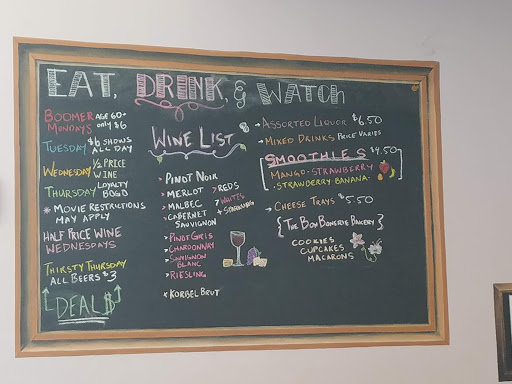 EAT, DRINK, & WATCH
BOOMER AGE 60+
MONDAYS ONLY $6
TUESDAY $6 SHOWS
ALL DAY
WEDNESDAY 1/2 PRICE
WINE
THURSDAY LOYALTY
BOGO
* MOVIE RESTRICTIONS
MAY APPLY
HALF PRICE WINE
WEDNESDAYS
THIRSTY THURSDAY
ALL BEERS $3
DEALS
WINE LIST
PINOT NOIR
MERLOT
MALBEC
CABERNET
SAUVIGNON
REDS
WHITES
+ SPARKLING
PINOT GRIS
CHARDONNAY
SAUVIGNON
BLANC
RIESLING
KORBEL BRUT
ASSORTED LIQUOR $6.50
MIXED DRINKS PRICE VARIES
SMOOTHIES $4.50
MANGO · STRAWBERRY
· STRAWBERRY BANANA ·
CHEESE TRAYS $5.50
{ THE BON BONERIE BAKERY }
COOKIES
CUPCAKES
MACARONS